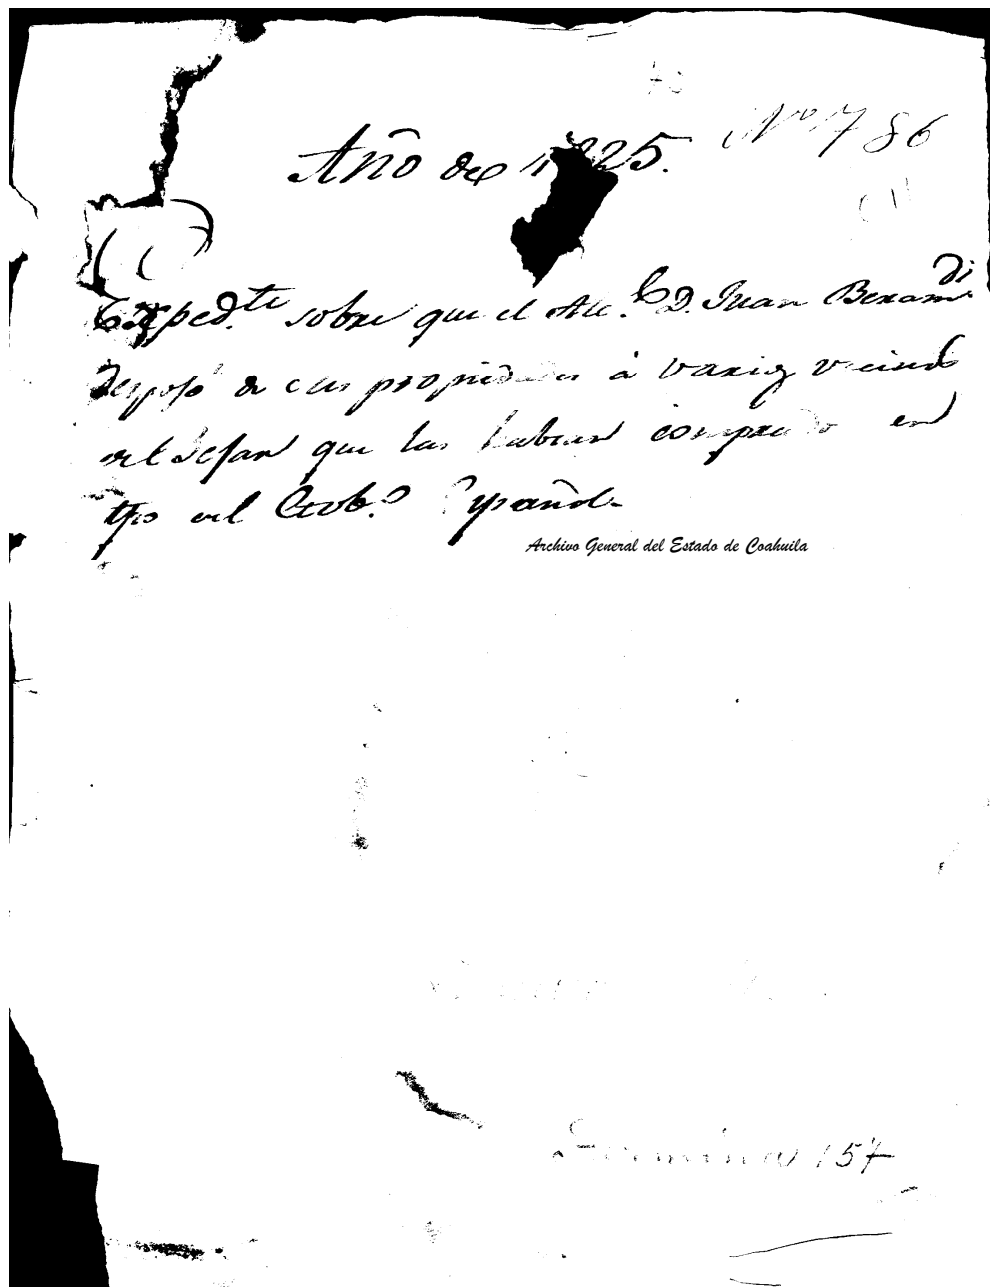 Nº 786
Año de 1825.
Exped.te sobre que el Alc.e D. Juan Beramdi
despojó de sus propiedades á varios vecinos
del que las habian comprado en
tpo del Gob.º Español.
Archivo General del Estado de Coahuila
157